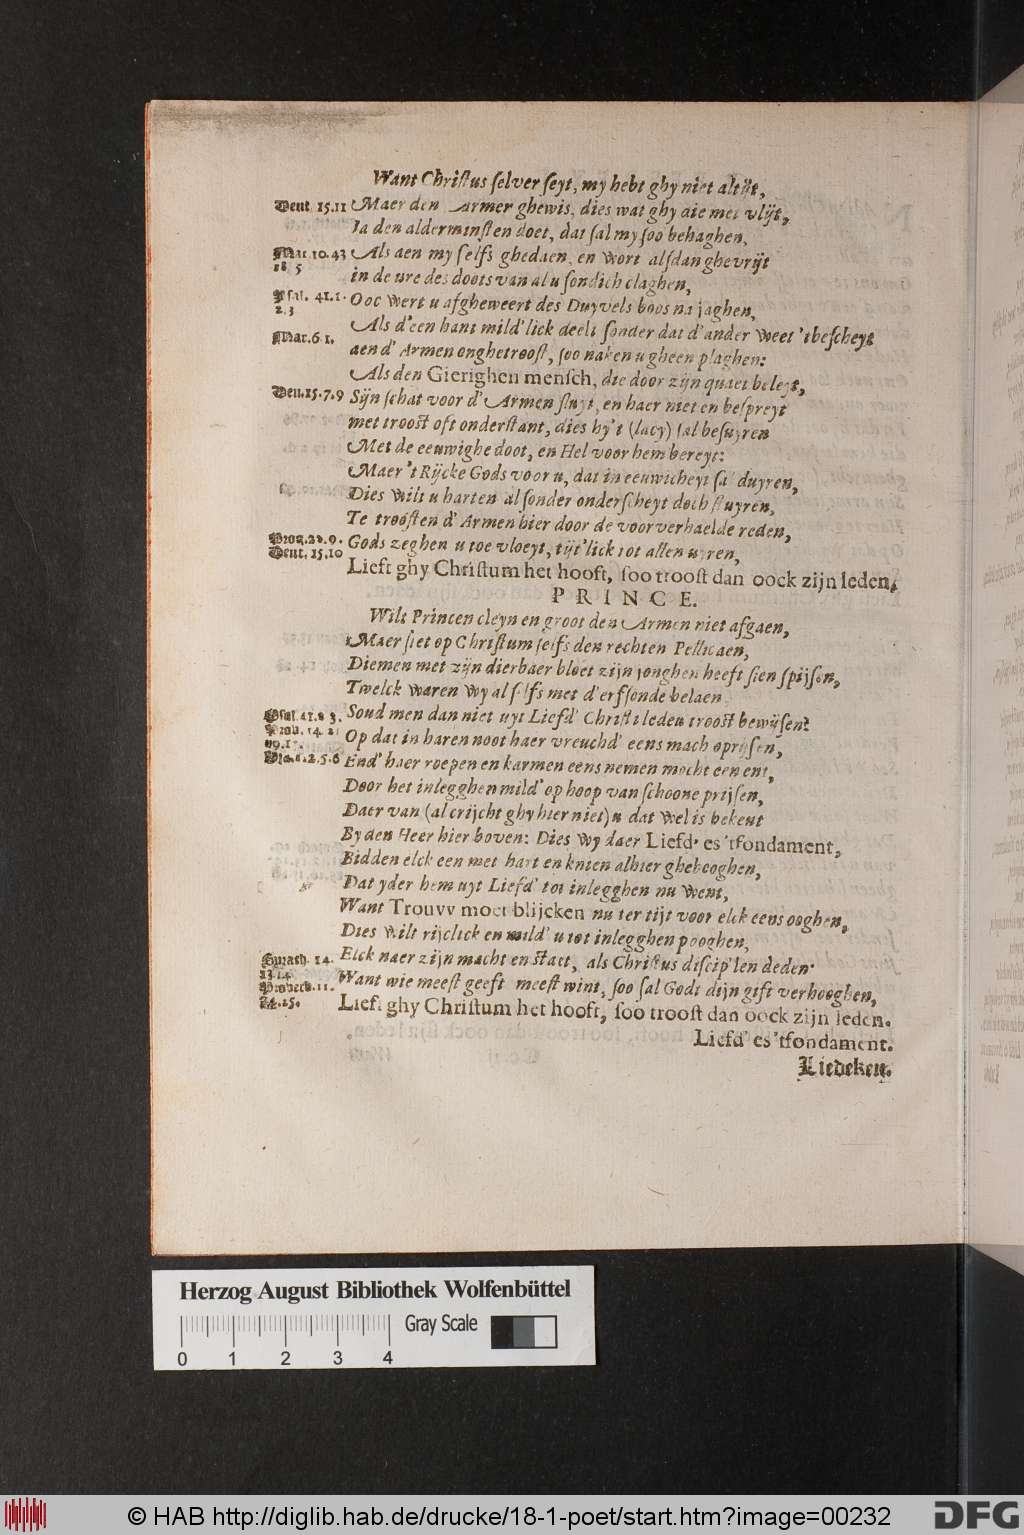 Want Christus selver seyt, my hebt ghy niet altijt,
Deut. 15.11 Maer den Armer ghewis, dies wat ghy die met vlijt,
Ja den alderminsten doet, dat sal my soo behaghen,
Mar. 10.43 Als aen my selfs ghedaen, en wort alsdan ghevrijt
18 5
in de ure des doots van al u sondich claghen,
Psal. 41.1. Ooc wert u afgheweert des Duyvels boos na jaghen,
2.3
Als d'een hant mild'lick deelt sonder dat d'ander weet 'tbescheyt
Mat. 6.1. aen d'Armen onghetroost, soo naken u gheen plaghen:
Als den Gierighen mensch, die door zijn quaet beleyt,
Deu. 15.7.9 Sijn schat voor d'Armen sluyt, en haer niet en bespreyt
met troost oft onderstant, dies hy't (lacy) sal besuyren
Met de eeuwighe doot, en Hel voor hem bereyt:
Maer 't Rijcke Gods voor u, dat in eeuwicheyt sal duyren,
Dies wilt u harten al sonder onderscheyt doch stuyren,
Te troosten d'Armen hier door de voorverhaelde reden,
Prou. 22.9. Gods zeghen u toe vloeyt, tijt'lick tot allen uyren,
Deut. 15.10
Lieft ghy Christum het hooft, soo troost dan oock zijn leden,
PRINCE.
Wilt Princen cleyn en groot den Armen niet afgaen,
Maer siet op Christum selfs den rechten Pellicaen,
Die men met zijn dierbaer bloet zijn jonghen heeft sien spijsen,
Twelck waren wy al selfs met d'erfsonde belaen
Psal. 41.2 3. Soud men dan niet uyt Liefd' Christi leden troost bewijsen?
Prou. 14. 21
Op dat in haren noot haer vreuchd' eens mach oprijsen,
19.17.
End' haer roepen en karmen eens nemen mocht een ent,
Door het inlegghen mild' op hoop van schoone prijsen,
Daer van (al crijcht ghy hier niet) u dat wel is bekent
By den Heer hier boven: Dies wy daer Liefd' es 'tfondament,
Bidden elck een met hart en knien alhier gheboghen,
Dat yder hem uyt Liefd' tot inlegghen nu went,
Want Trouvv moet blijcken nu ter tijt voor elck eens ooghen,
Dies wilt rijclick en mild' u tot inlegghen pooghen,
Elck naer zijn macht en staet, als Christus discip'len deden.
13.14
Want wie meest geeft meest wint, soo sal Godt dijn gift verhooghen,
24.25.
Lieft ghy Christum het hooft, soo troost dan oock zijn leden.
Liefd' es 'tfondament.
Liedeken.
Herzog August Bibliothek Wolfenbüttel
Gray Scale
0 1 2 3 4
© HAB http://diglib.hab.de/drucke/18-1-poet/start.htm?image=00232
DFG